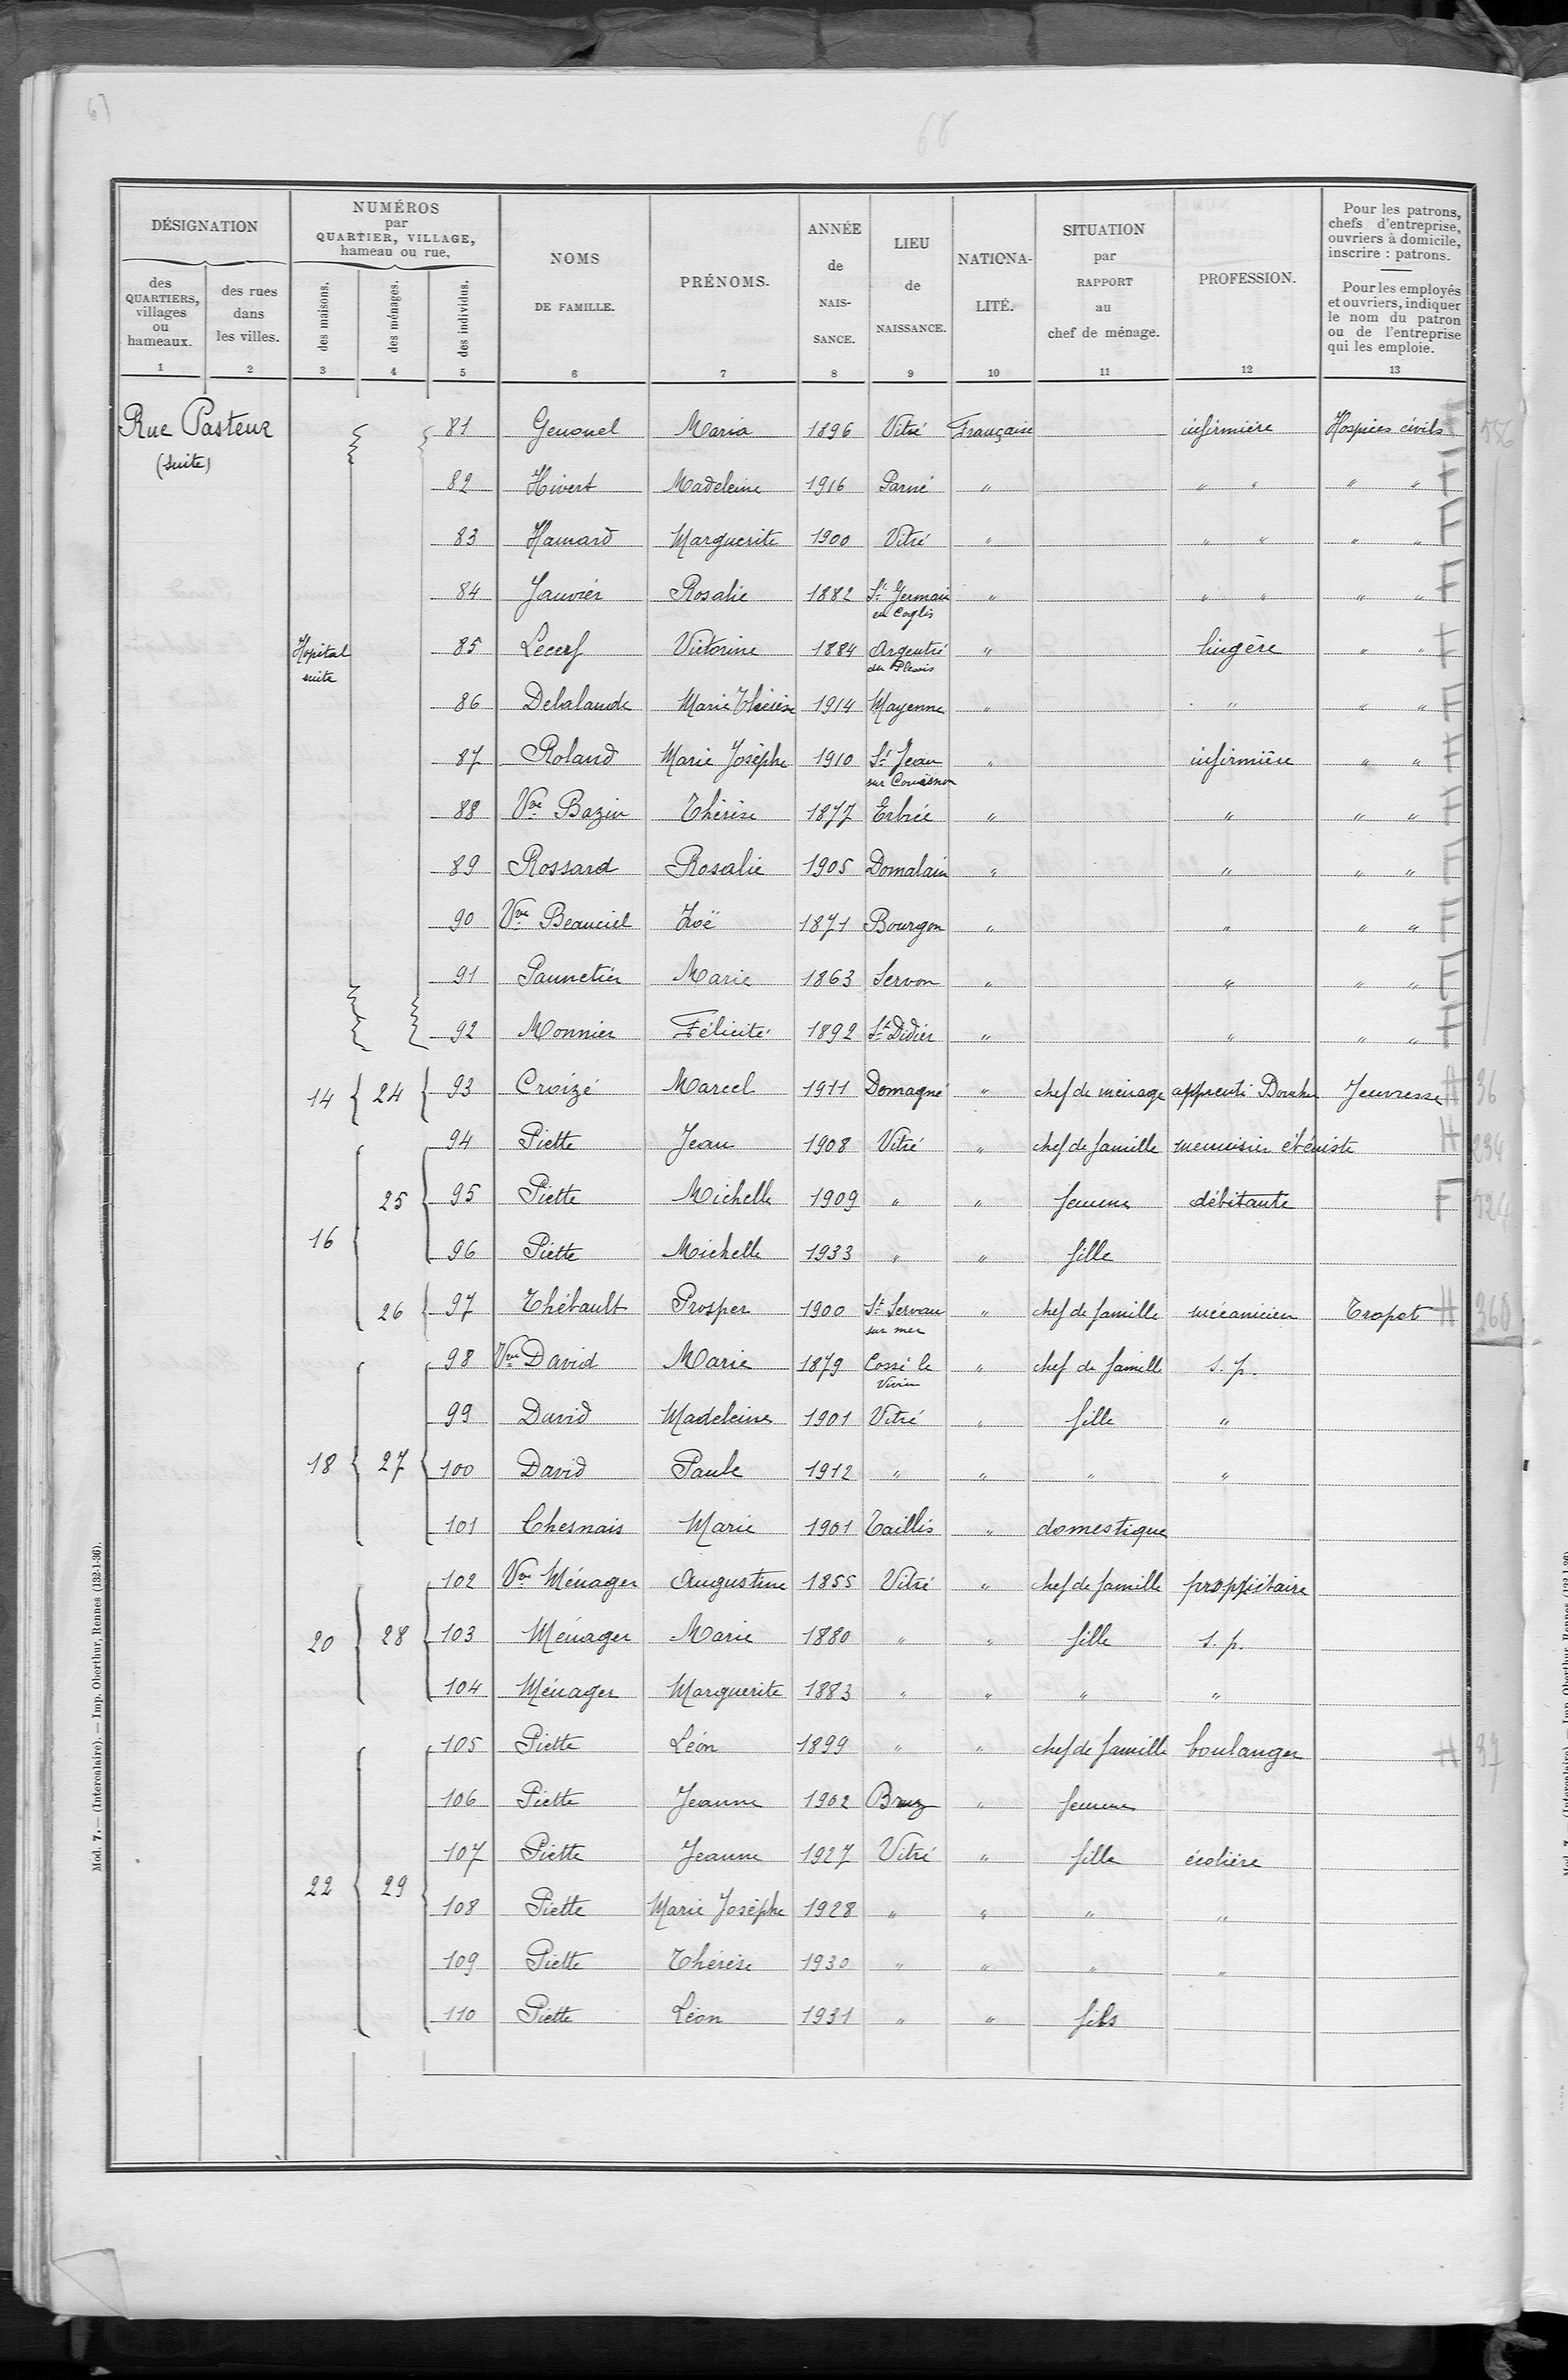 67
68
DÉSIGNATION
des QUARTIERS, villages ou hameaux.
des rues dans les villes.
NUMÉROS par QUARTIER, VILLAGE, hameau ou rue.
des maisons.
des ménages.
des individus.
NOMS DE FAMILLE.
PRÉNOMS.
ANNÉE de NAIS- SANCE.
LIEU de NAISSANCE.
NATIONA- LITÉ.
SITUATION par RAPPORT au chef de ménage.
PROFESSION.
Pour les patrons, chefs d'entreprise, ouvriers à domicile, inscrire : patrons.
Pour les employés et ouvriers, indiquer le nom du patron ou de l'entreprise qui les emploie.
1 2 3 4 5 6 7 8 9 10 11 12 13
Rue Pasteur (suite)
81 Genouel Maria 1896 Vitré Française infirmière Hospices civils
82 Hivert Madeleine 1916 Parné " " " " " F
83 Hamard Marguerite 1900 Vitré " " " " " F
84 Janvier Rosalie 1882 St Germain en Coglès " " " " " F
Hopital suite
85 Lecerf Victorine 1884 Argentré du Plessis " lingère " " F
86 Delalande Marie Thérèse 1914 Mayenne " " " " F
87 Roland Marie Josèphe 1910 St Jean sur Couësnon " infirmière " " F
88 Vve Bazin Thérèse 1877 Erbrée " " " " F
89 Rossard Rosalie 1905 Domalain " " " " F
90 Vve Beauciel Zoë 1871 Bourgon " " " " F
91 Pannetier Marie 1863 Servon " " " " F
92 Monnier Félicité 1892 St Didier " " " " F
14 24 93 Croizé Marcel 1911 Domagné " chef de ménage apprenti Jeuvresse H 36
94 Piette Jean 1908 Vitré " chef de famille menuisier ébéniste H 234
16 25 95 Piette Michelle 1909 " " femme débitante F 124
96 Piette Michelle 1933 " " fille
26 97 Thébault Prosper 1900 St Servan sur mer " chef de famille mécanicien Tropot H 360
98 Vve David Marie 1879 Cossé le Vivien " chef de famille s. p.
99 David Madeleine 1901 Vitré " fille "
18 27 100 David Paule 1912 " " " "
101 Chesnais Marie 1901 Taillis " domestique
102 Vve Ménager Augustine 1855 Vitré " chef de famille propriétaire
20 28 103 Ménager Marie 1880 " " fille s. p.
104 Ménager Marguerite 1883 " " " "
105 Piette Léon 1899 " " chef de famille boulanger H 97
106 Piette Jeanne 1902 Bruz " femme
107 Piette Jeanne 1927 Vitré " fille écolière
22 29 108 Piette Marie Josèphe 1928 " " " "
109 Piette Thérèse 1930 " " " "
110 Piette Léon 1931 " " fils
Mod. 7. — (Intercalaire). — Imp. Oberthur, Rennes (132-1-36).